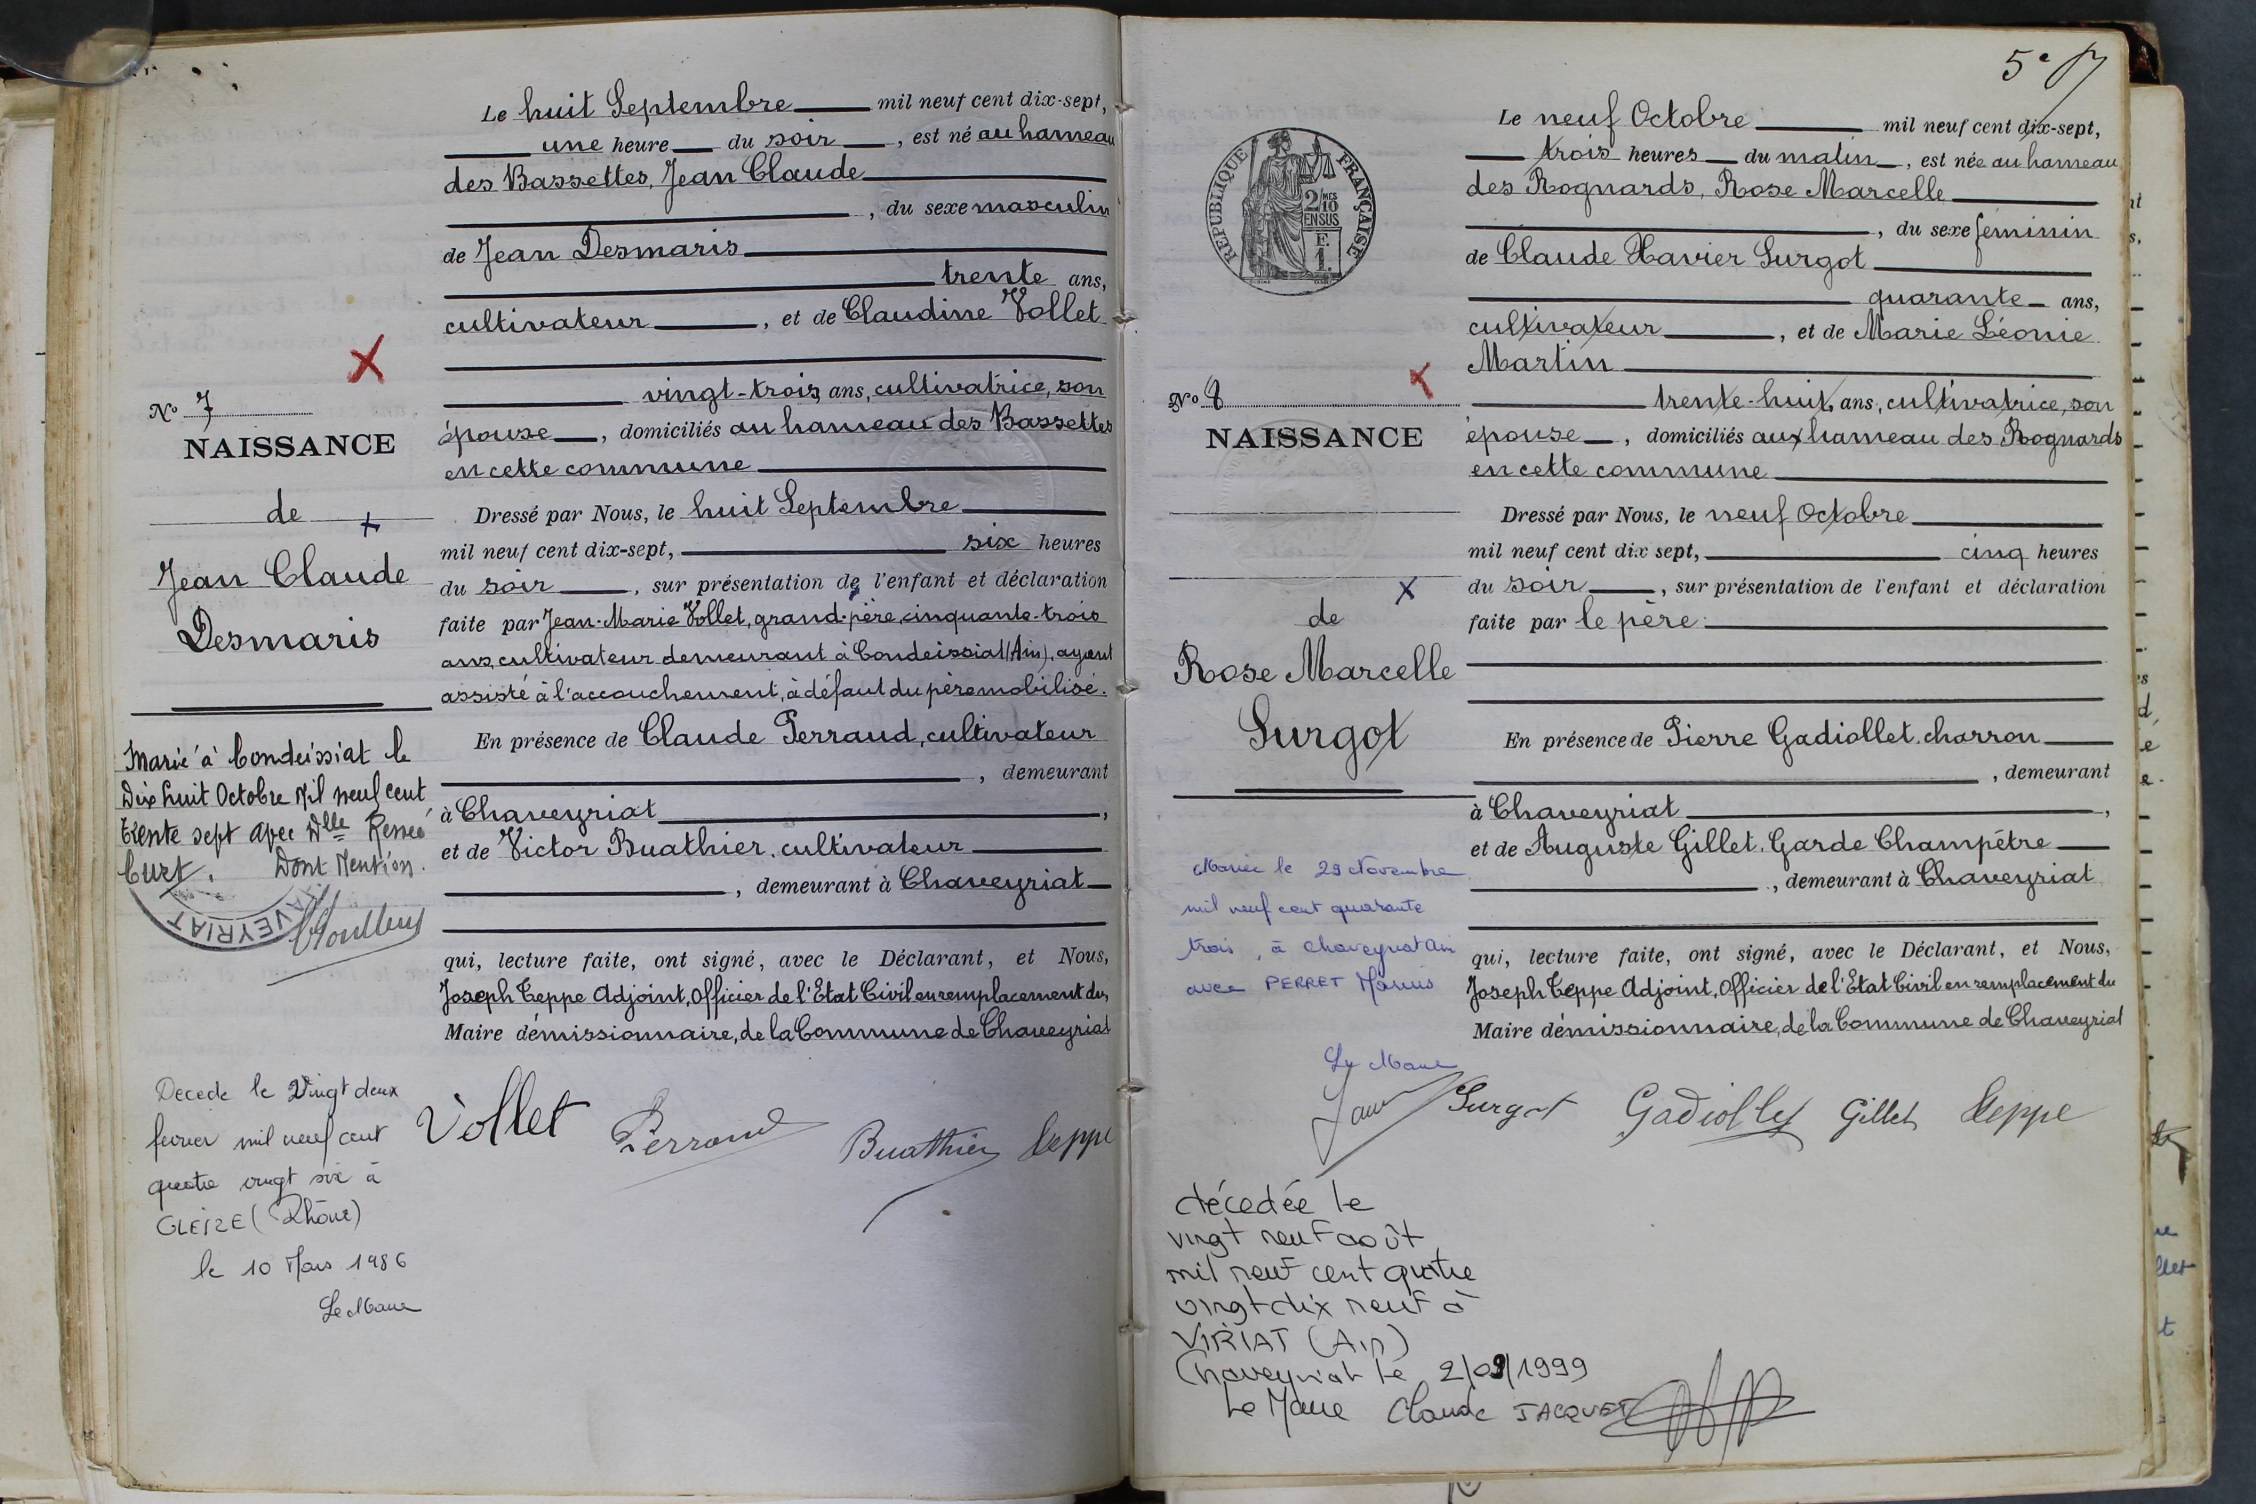 Le huit Septembre mil neuf cent dix-sept,
une heure du soir, est né au hameau
des Bassettes, Jean Claude
, du sexe masculin
de Jean Desmaris
trente ans,
cultivateur, et de Claudine Vollet
vingt-trois ans, cultivatrice, son
épouse, domiciliés au hameau des Bassettes
en cette commune
Dressé par Nous, le huit Septembre
mil neuf cent dix-sept, six heures
du soir, sur présentation de l'enfant et déclaration
faite par Jean-Marie Vollet, grand-père, cinquante-trois
ans, cultivateur demeurant à Condeissiat (Ain), ayant
assisté à l'accouchement, à défaut du père mobilisé.
En présence de Claude Perraud, cultivateur
, demeurant
à Chaveyriat,
et de Victor Buathier, cultivateur
, demeurant à Chaveyriat
qui, lecture faite, ont signé, avec le Déclarant, et Nous,
Joseph Teppe Adjoint, Officier de l'Etat Civil en remplacement du
Maire démissionnaire, de la Commune de Chaveyriat
Vollet Perraud Buathier Teppe
No 7
NAISSANCE
de
Jean Claude
Desmaris
Marié à Condeissiat le
Dix huit Octobre Mil neuf cent
trente sept avec Dlle Renée
Curt. Dont Mention.
VEYRIAT
Decede le Vingt deux
fevrier mil neuf cent
quatre vingt six à
GLEIZE (Rhône)
le 10 Mars 1986
Le Maire
5e
Le neuf Octobre mil neuf cent dix-sept,
trois heures du matin, est née au hameau
des Rognards, Rose Marcelle
, du sexe féminin
de Claude Xavier Surgot
quarante ans,
cultivateur, et de Marie Léonie
Martin
trente-huit, ans, cultivatrice, son
épouse, domiciliés aux hameau des Rognards
en cette commune
Dressé par Nous, le neuf Octobre
mil neuf cent dix sept, cinq heures
du soir, sur présentation de l'enfant et déclaration
faite par le père
En présence de Pierre Gadiollet, charron
, demeurant
à Chaveyriat,
et de Auguste Gillet, Garde Champêtre
, demeurant à Chaveyriat
qui, lecture faite, ont signé, avec le Déclarant, et Nous,
Joseph Teppe Adjoint, Officier de l'Etat Civil en remplacement du
Maire démissionnaire, de la Commune de Chaveyriat
Surgot Gadiollet Gillet Teppe
REPUBLIQUE FRANÇAISE
2/10 MES
EN SUS
E.
1.
No 8
NAISSANCE
de
Rose Marcelle
Surgot
Mariée le 29 Novembre
mil neuf cent quarante
trois, à Chaveyriat Ain
avec PERRET Marius
Le Maire
décedée le
vingt neuf août
mil neuf cent quatre
vingt dix neuf à
VIRIAT (Ain)
Chaveyriat le 2/09/1999
Le Maire Claude JACQUET